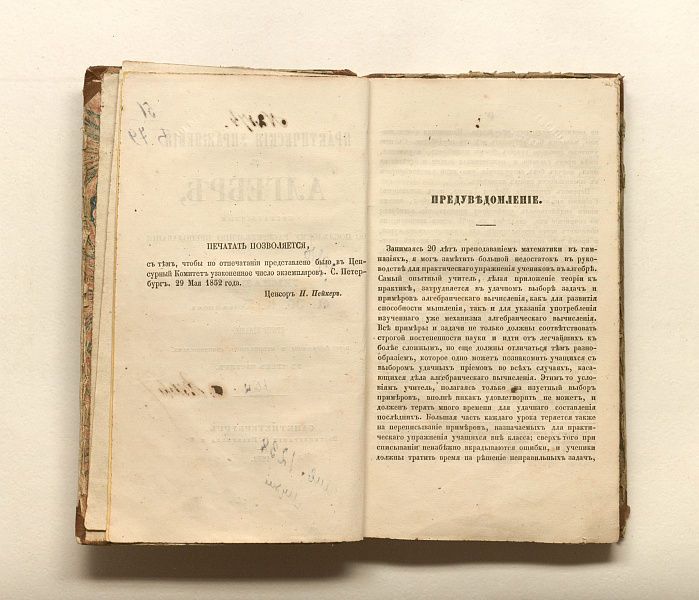 ПЕЧАТАТЬ ПОЗВОЛЯЕТСЯ,
съ тѣмъ, чтобы по отпечатаніи представлено было въ Цен-
сурный Комитетъ узаконенное число экземпляровъ. С. Петер-
бургъ. 29 Мая 1852 года.
Ценсоръ П. Пейкеръ.
ПРЕДУВѢДОМЛЕНІЕ.
Занимаясь 20 лѣтъ преподаваніемъ математики въ гим-
назіяхъ, я могъ замѣтить большой недостатокъ въ руко-
водствѣ для практическаго упражненія учениковъ въ алгебрѣ.
Самый опытный учитель, дѣлая приложеніе теоріи къ
практикѣ, затрудняется въ удачномъ выборѣ задачъ и
примѣровъ алгебраическаго вычисленія, какъ для развитія
способности мышленія, такъ и для указанія употребленія
изученнаго уже механизма алгебраическаго вычисленія.
Всѣ примѣры и задачи не только должны соотвѣтствовать
строгой постепенности науки и идти отъ легчайшихъ къ
болѣе сложнымъ, но еще должны отличаться тѣмъ разно-
образіемъ, которое одно можетъ познакомить учащихся съ
выборомъ удачныхъ пріемовъ во всѣхъ случаяхъ, касаю-
щихся дѣла алгебраическаго вычисленія. Этимъ то усло-
віямъ учитель, полагаясь только на изустный выборъ
примѣровъ, вполнѣ никакъ удовлетворить не можетъ, и
долженъ терять много времени для удачнаго составленія
послѣднихъ. Большая часть каждаго урока теряется также
на переписываніе примѣровъ, назначаемыхъ для практи-
ческаго упражненія учащихся внѣ класса; сверхъ того при
списываніи неизбѣжно вкрадываются ошибки, и ученики
должны тратить время на рѣшеніе неправильныхъ задачъ,